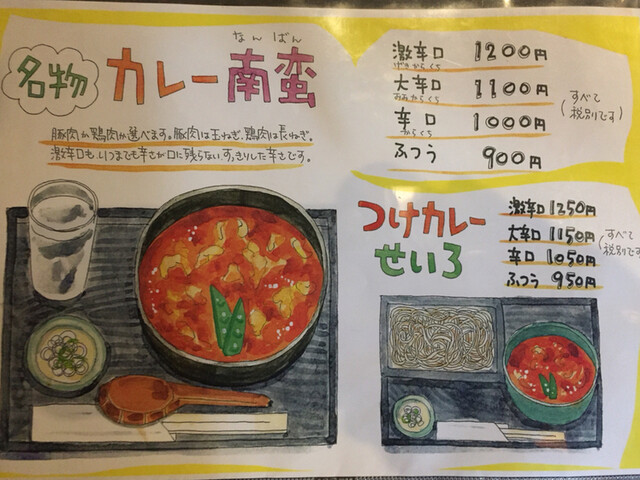 なんばん
名物 カレー南蛮
豚肉か鶏肉か選べます。豚肉は玉ねぎ、鶏肉は長ねぎ。
激辛口も、いつまでも辛さが口に残らない、すっきりした辛さです。
激辛口 1200円
げきからくち
大辛口 1100円
おおからくち
辛口 1000円
からくち
ふつう 900円
(すべて税別です)
つけカレーせいろ
激辛口 1250円
大辛口 1150円
辛口 1050円
ふつう 950円
(すべて税別です